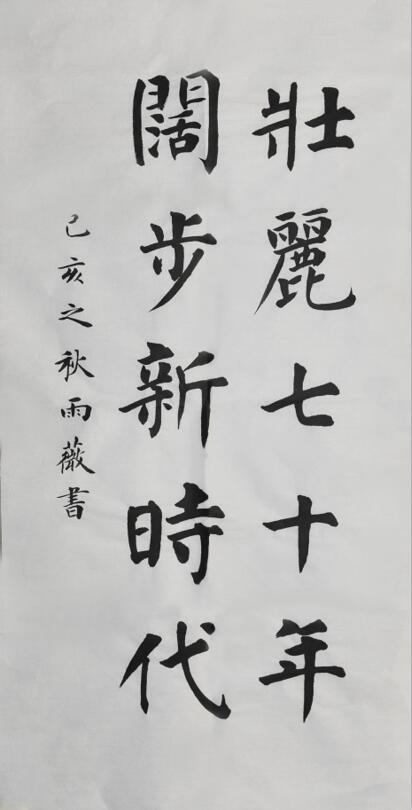 壯麗七十年
闊步新時代
己亥之秋雨薇書